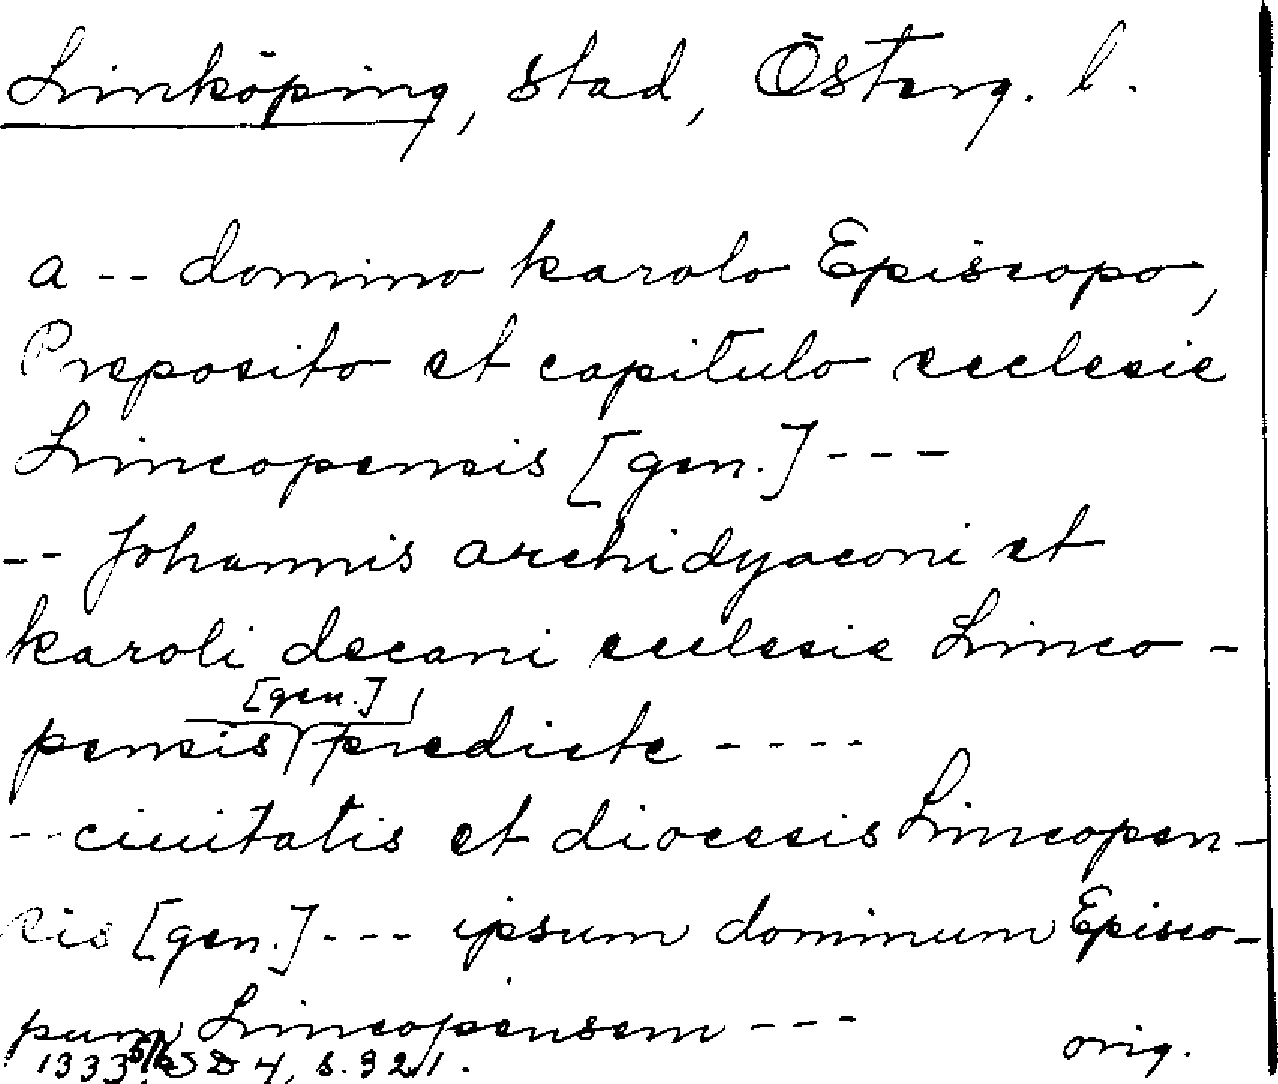 Linköping, stad, Österg. l.
a -- domino karolo Episcopo,
Preposito et capitulo ecclesie
Lincopensis [gen.] ---
-- Johannis archidyaconi et
karoli decani ecclesie Linco-
pensis [gen.] predicte ----
-- ciuitatis et diocesis Lincopen-
sis [gen.] --- ipsum dominum Episco-
pum Lincopensem ---
1333 SD 4, s. 321.
orig.